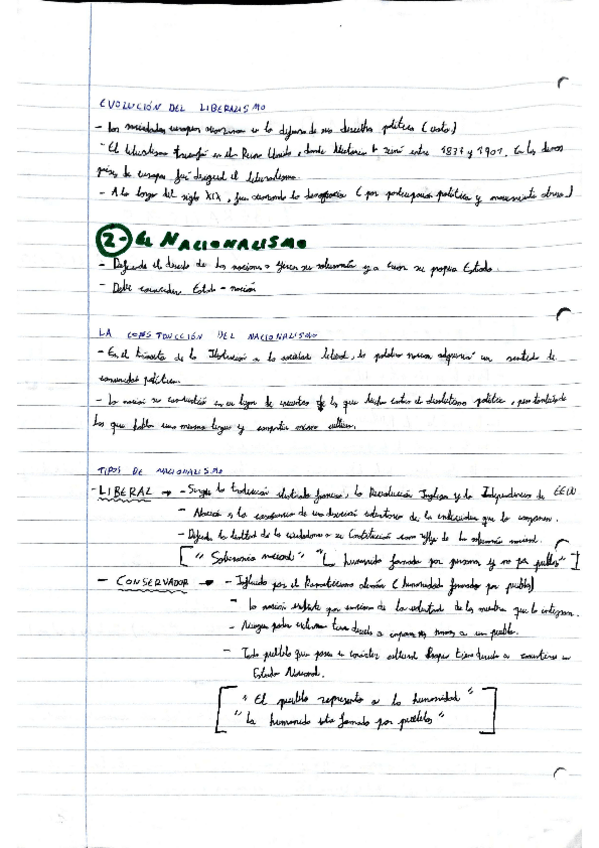 EVOLUCIÓN DEL LIBERALISMO
- Las sociedades europeas en la defensa de sus derechos políticos (voto)
- El liberalismo triunfó en el Reino Unido, donde Victoria I reinó entre 1837 y 1901. En los demás
países de Europa fue desigual el liberalismo.
- A lo largo del siglo XIX, fue la democracia (por participación política y movimiento obrero)
2- EL NACIONALISMO
- Defiende el derecho de las naciones a ejercer su soberanía y a crear su propio Estado.
- Debe coincidir Estado - nación
LA CONSTRUCCIÓN DEL NACIONALISMO
- En el tránsito de la Ilustración a la sociedad liberal, la palabra nación adquirió un sentido de
comunidad política.
- La nación se convirtió en un lugar de encuentro de los que luchan contra el absolutismo político, pero también de
los que hablan una misma lengua y comparten misma cultura.
TIPOS DE NACIONALISMO
- LIBERAL → - Surge la tradición ilustrada francesa, la Revolución Inglesa y la Independencia de EEUU
- Nación es la de una decisión voluntaria de los individuos que la componen.
- Defiende la libertad de los ciudadanos y su Constitución como reflejo de la soberanía nacional.
["Soberanía nacional" "La humanidad formada por personas y no por pueblos"]
- CONSERVADOR → - Influido por el Romanticismo alemán (humanidad formada por pueblos)
- La nación existe por encima de la voluntad de los miembros que la integran.
- Ningún poder externo tiene derecho a imponer normas a un pueblo.
- Todo pueblo que posea un carácter cultural propio tiene derecho a constituirse en
Estado Nacional.
["El pueblo representa a la humanidad"
"La humanidad está formada por pueblos"]